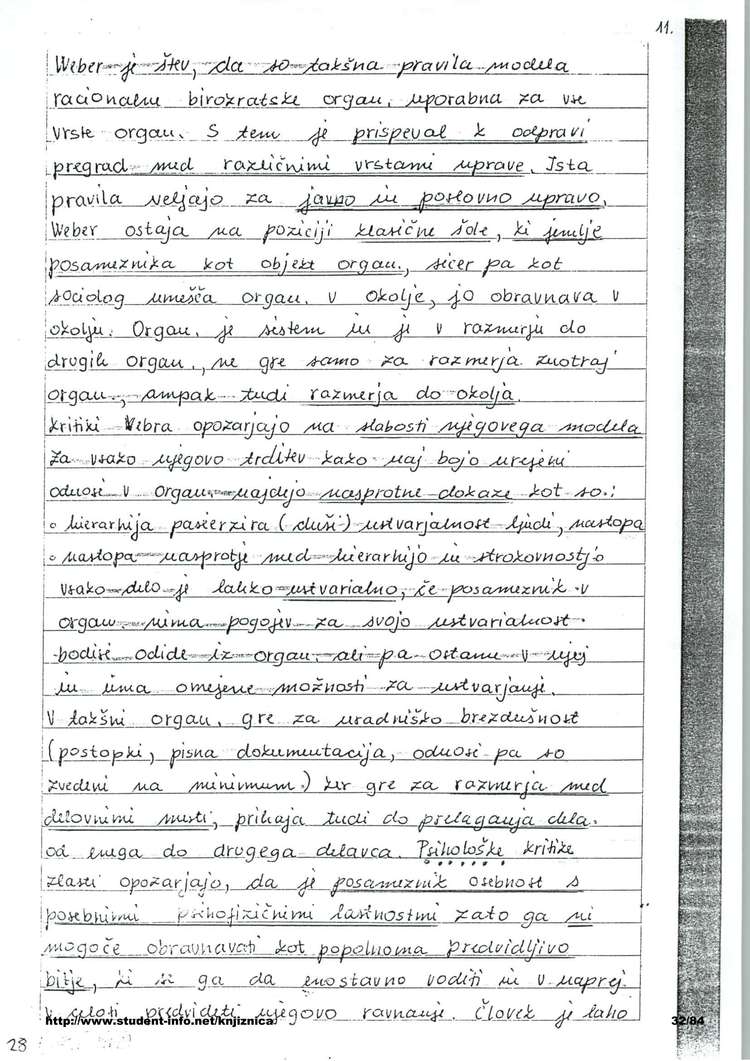 11.
Weber je štev, da so takšna pravila modela
racionalne birokratske organ. uporabna za vse
vrste organ. S tem je prispeval k odpravi
pregrad med različnimi vrstami uprave. Ista
pravila veljajo za javno in poslovno upravo.
Weber ostaja na poziciji klasične šole, ki jemlje
posameznika kot objekt organ., sicer pa kot
sociolog umešča organ. v okolje, jo obravnava v
okolju. Organ. je sistem in je v razmerju do
drugih organ., ne gre samo za razmerja znotraj
organ., ampak tudi razmerja do okolja.
Kritiki Vebra opozarjajo na slabosti njegovega modela
Za vsako njegovo trditev kako naj bojo urejeni
odnosi v organ. najdejo nasprotne dokaze kot so:
• hierarhija pasivizira (duši) ustvarjalnost ljudi, nastopa
• nastopa nasprotje med hierarhijo in strokovnostjo
vsako delo je lahko ustvarialno, če posameznik v
organ. nima pogojev za svojo ustvarialnost.
bodisi odide iz organ. ali pa ostane v njej
in ima omejene možnosti za ustvarjanje.
V takšni organ. gre za uradniško brezdušnost
(postopki, pisna dokumentacija, odnosi pa so
zvedeni na minimum.) ker gre za razmerja med
delovnimi mesti, prihaja tudi do prelaganja dela.
od enega do drugega delavca. Psihološke kritike
zlasti opozarjajo, da je posameznik osebnost s
posebnimi psihofizičnimi lastnostmi zato ga ni
mogoče obravnavati kot popolnoma predvidljivo
bitje, ki se ga da enostavno voditi in v naprej
v celoti predvideti njegovo ravnanje. Človek je laho
http://www.student-info.net/knjiznica
32/84
28